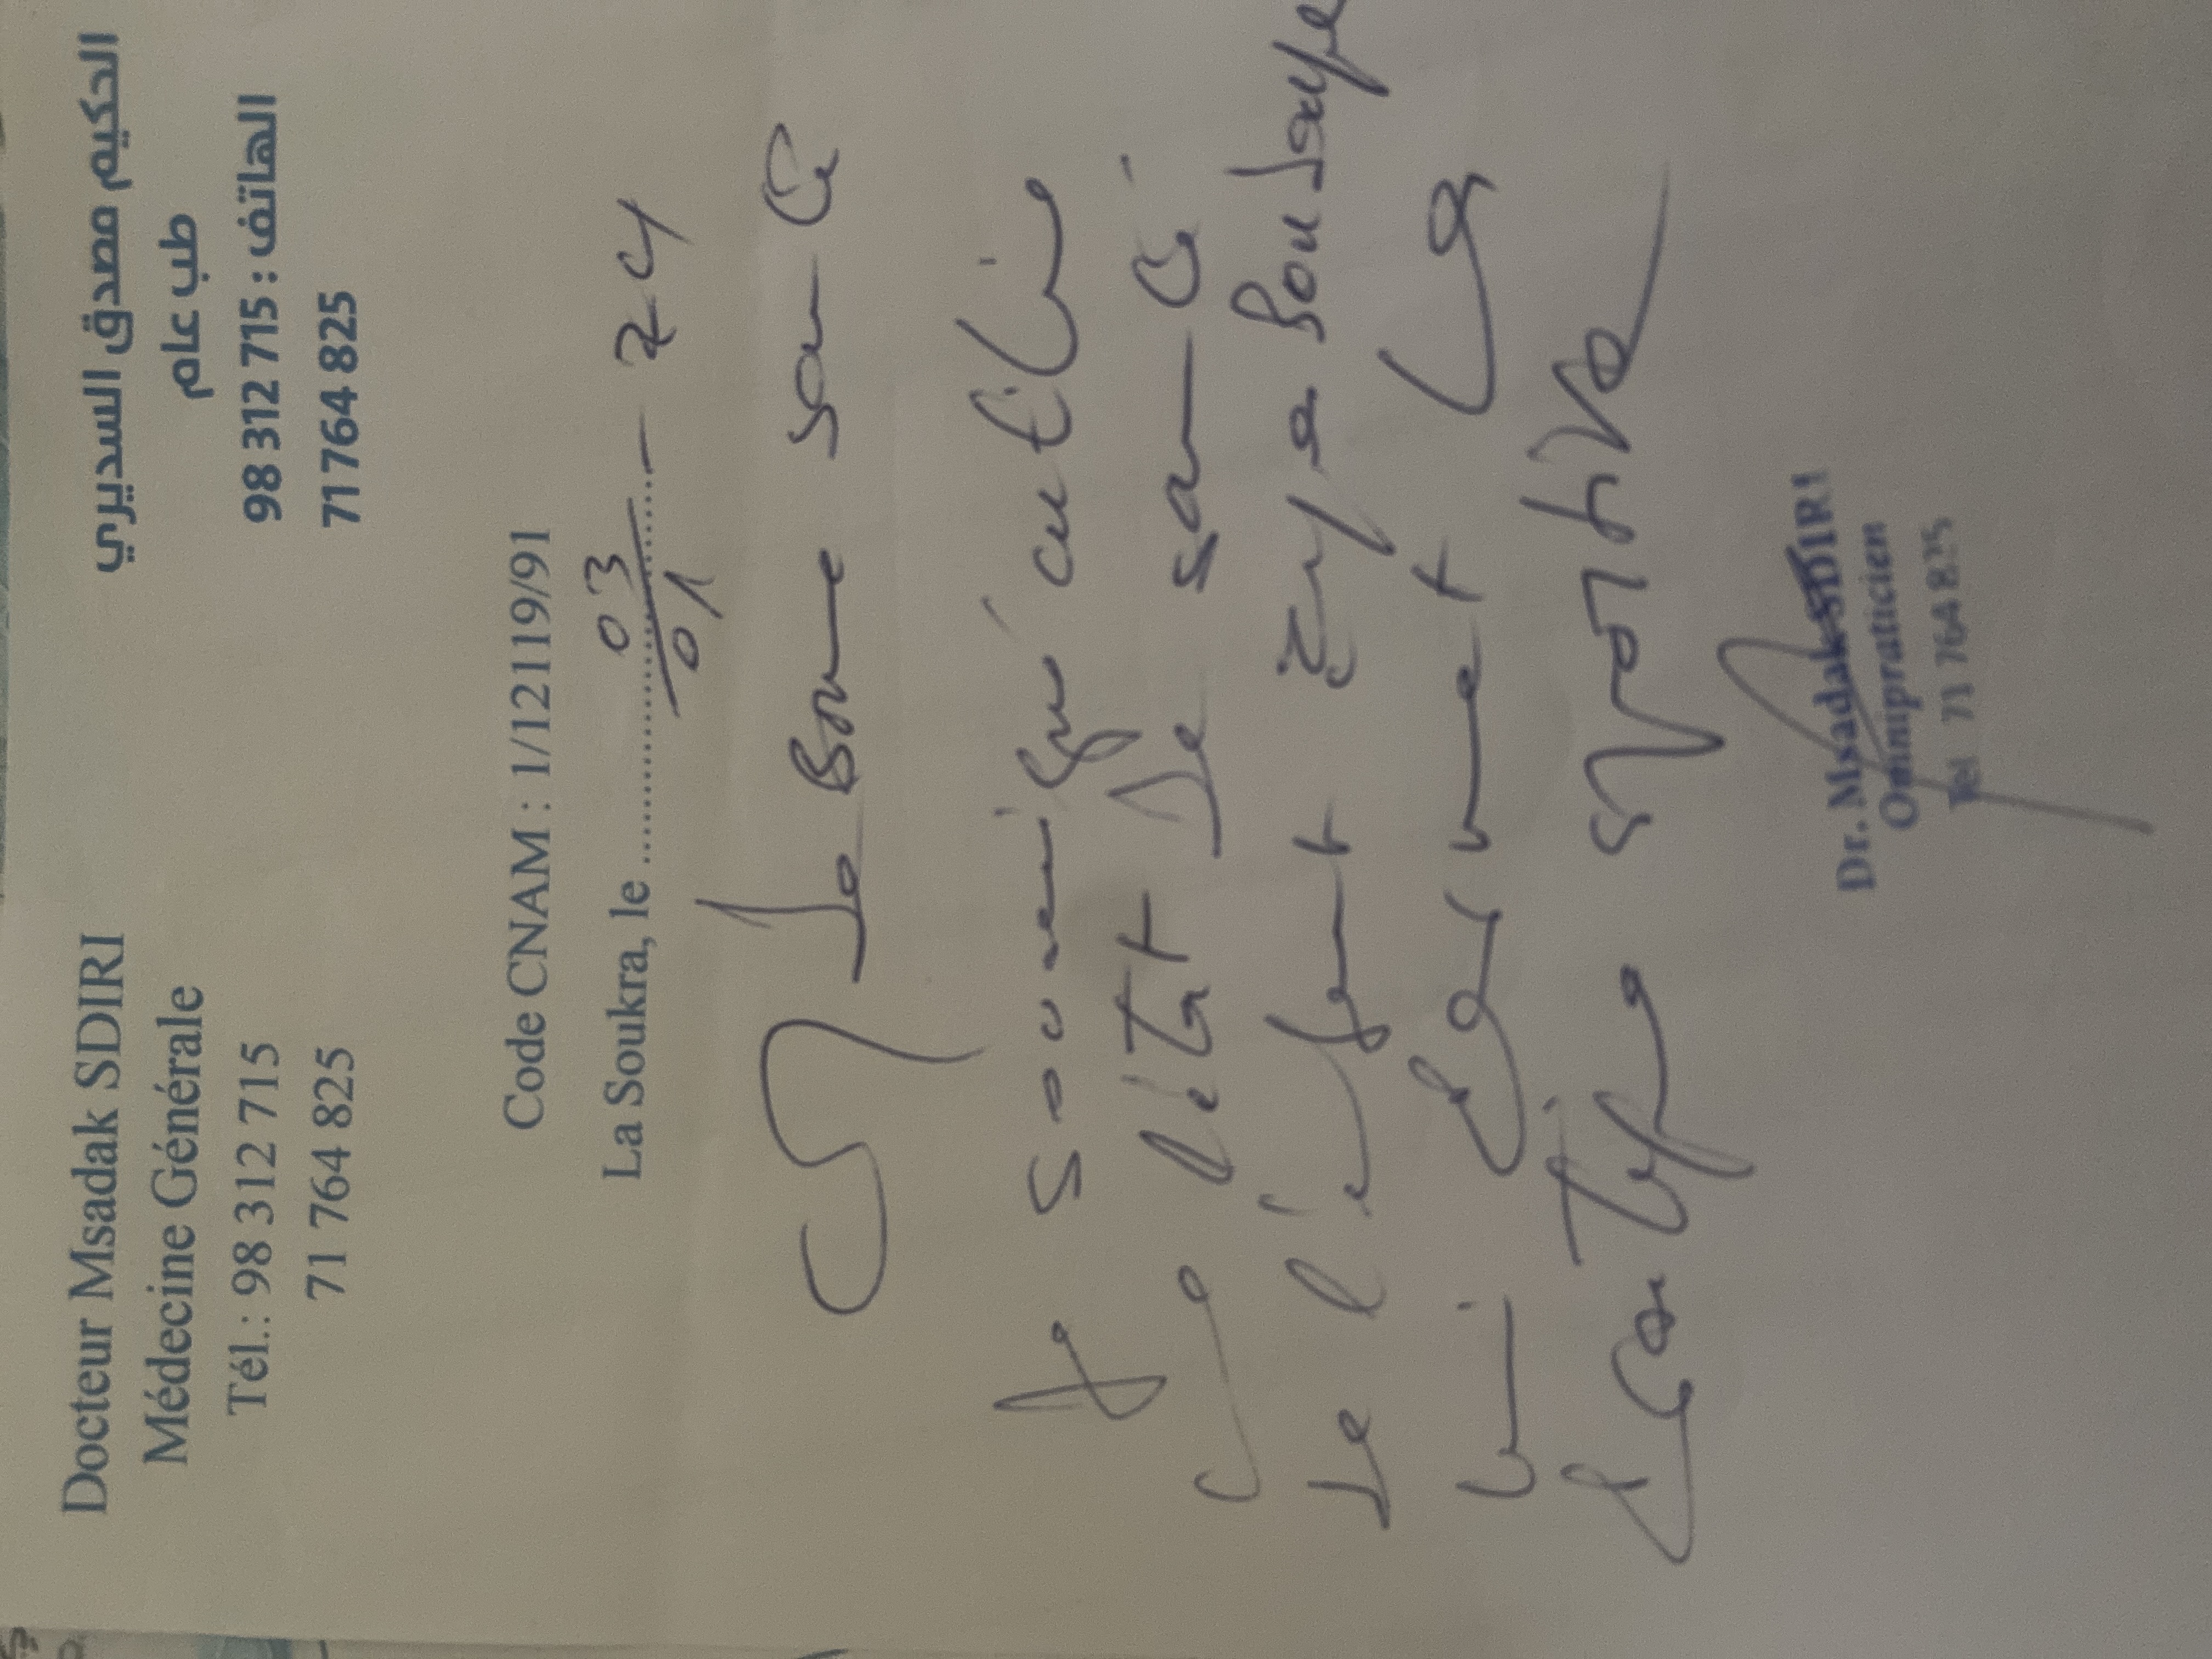 Docteur Msadak SDIRI
الحكيم مصدق السديري
Médecine Générale
طب عام
Tél.: 98 312 715
الهاتف : 715 312 98
71 764 825
71 764 825
Code CNAM : 1/12119/91
La Soukra, le 03/01 - 24
de Bonne santé
Je soussigné certifie
l'état de santé
de l'enfant Zeyd
lui permet la
pratique sportive
Dr. Msadak SDIRI
Omnipraticien
Tel 71 764 825